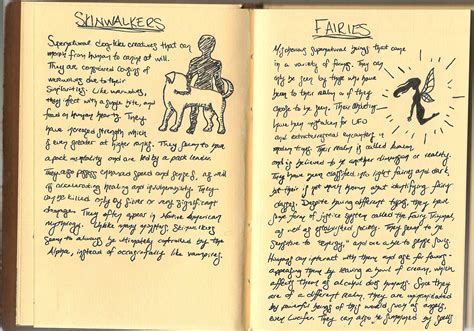 SKINWALKERS
Supernatural dog-like creatures that can
morph from human to canine at will.
They are considered cousins of
werewolves due to their
similarities. Like werewolves,
they infect with a single bite, and
feed on human hearts. They
have increased strength which
is even greater at higher ranks. They seem to have
a pack mentality and are led by a pack leader.
They also possess enhanced speed and senses, as well
as accelerated healing and invulnerability. They
can be killed only by silver or very significant
damage. They often appear in Native American
mythology. Unlike many monsters Skinwalkers
seem to always be ultimately controlled by the
Alpha, instead of occasionally like vampires.
FAIRIES
Mysterious supernatural beings that come
in a variety of forms. They can
only be seen by those who have
been to their realm or if they
choose to be seen. Their abductions
have been mistaken for UFO
and extraterrestrial encounters in
modern times. Their realm is called Avalon,
and is believed to be another dimension or reality.
They have been classified into light fairies and dark,
but there is yet much known about identifying fairy
classes. Despite having different types, they have
some form of justice system called the Fairy Tribunal,
as well as established society. They seem to be
sensitive to energy, and are able to sense souls.
Humans can interact with them and ask for favors -
appeasing them by leaving a bowl of cream, which
affects them as alcohol does humans. Since they
are of a different realm, they are unprecedented
by powerful beings of this world such as angels,
even Lucifer. They can also be summoned by spells